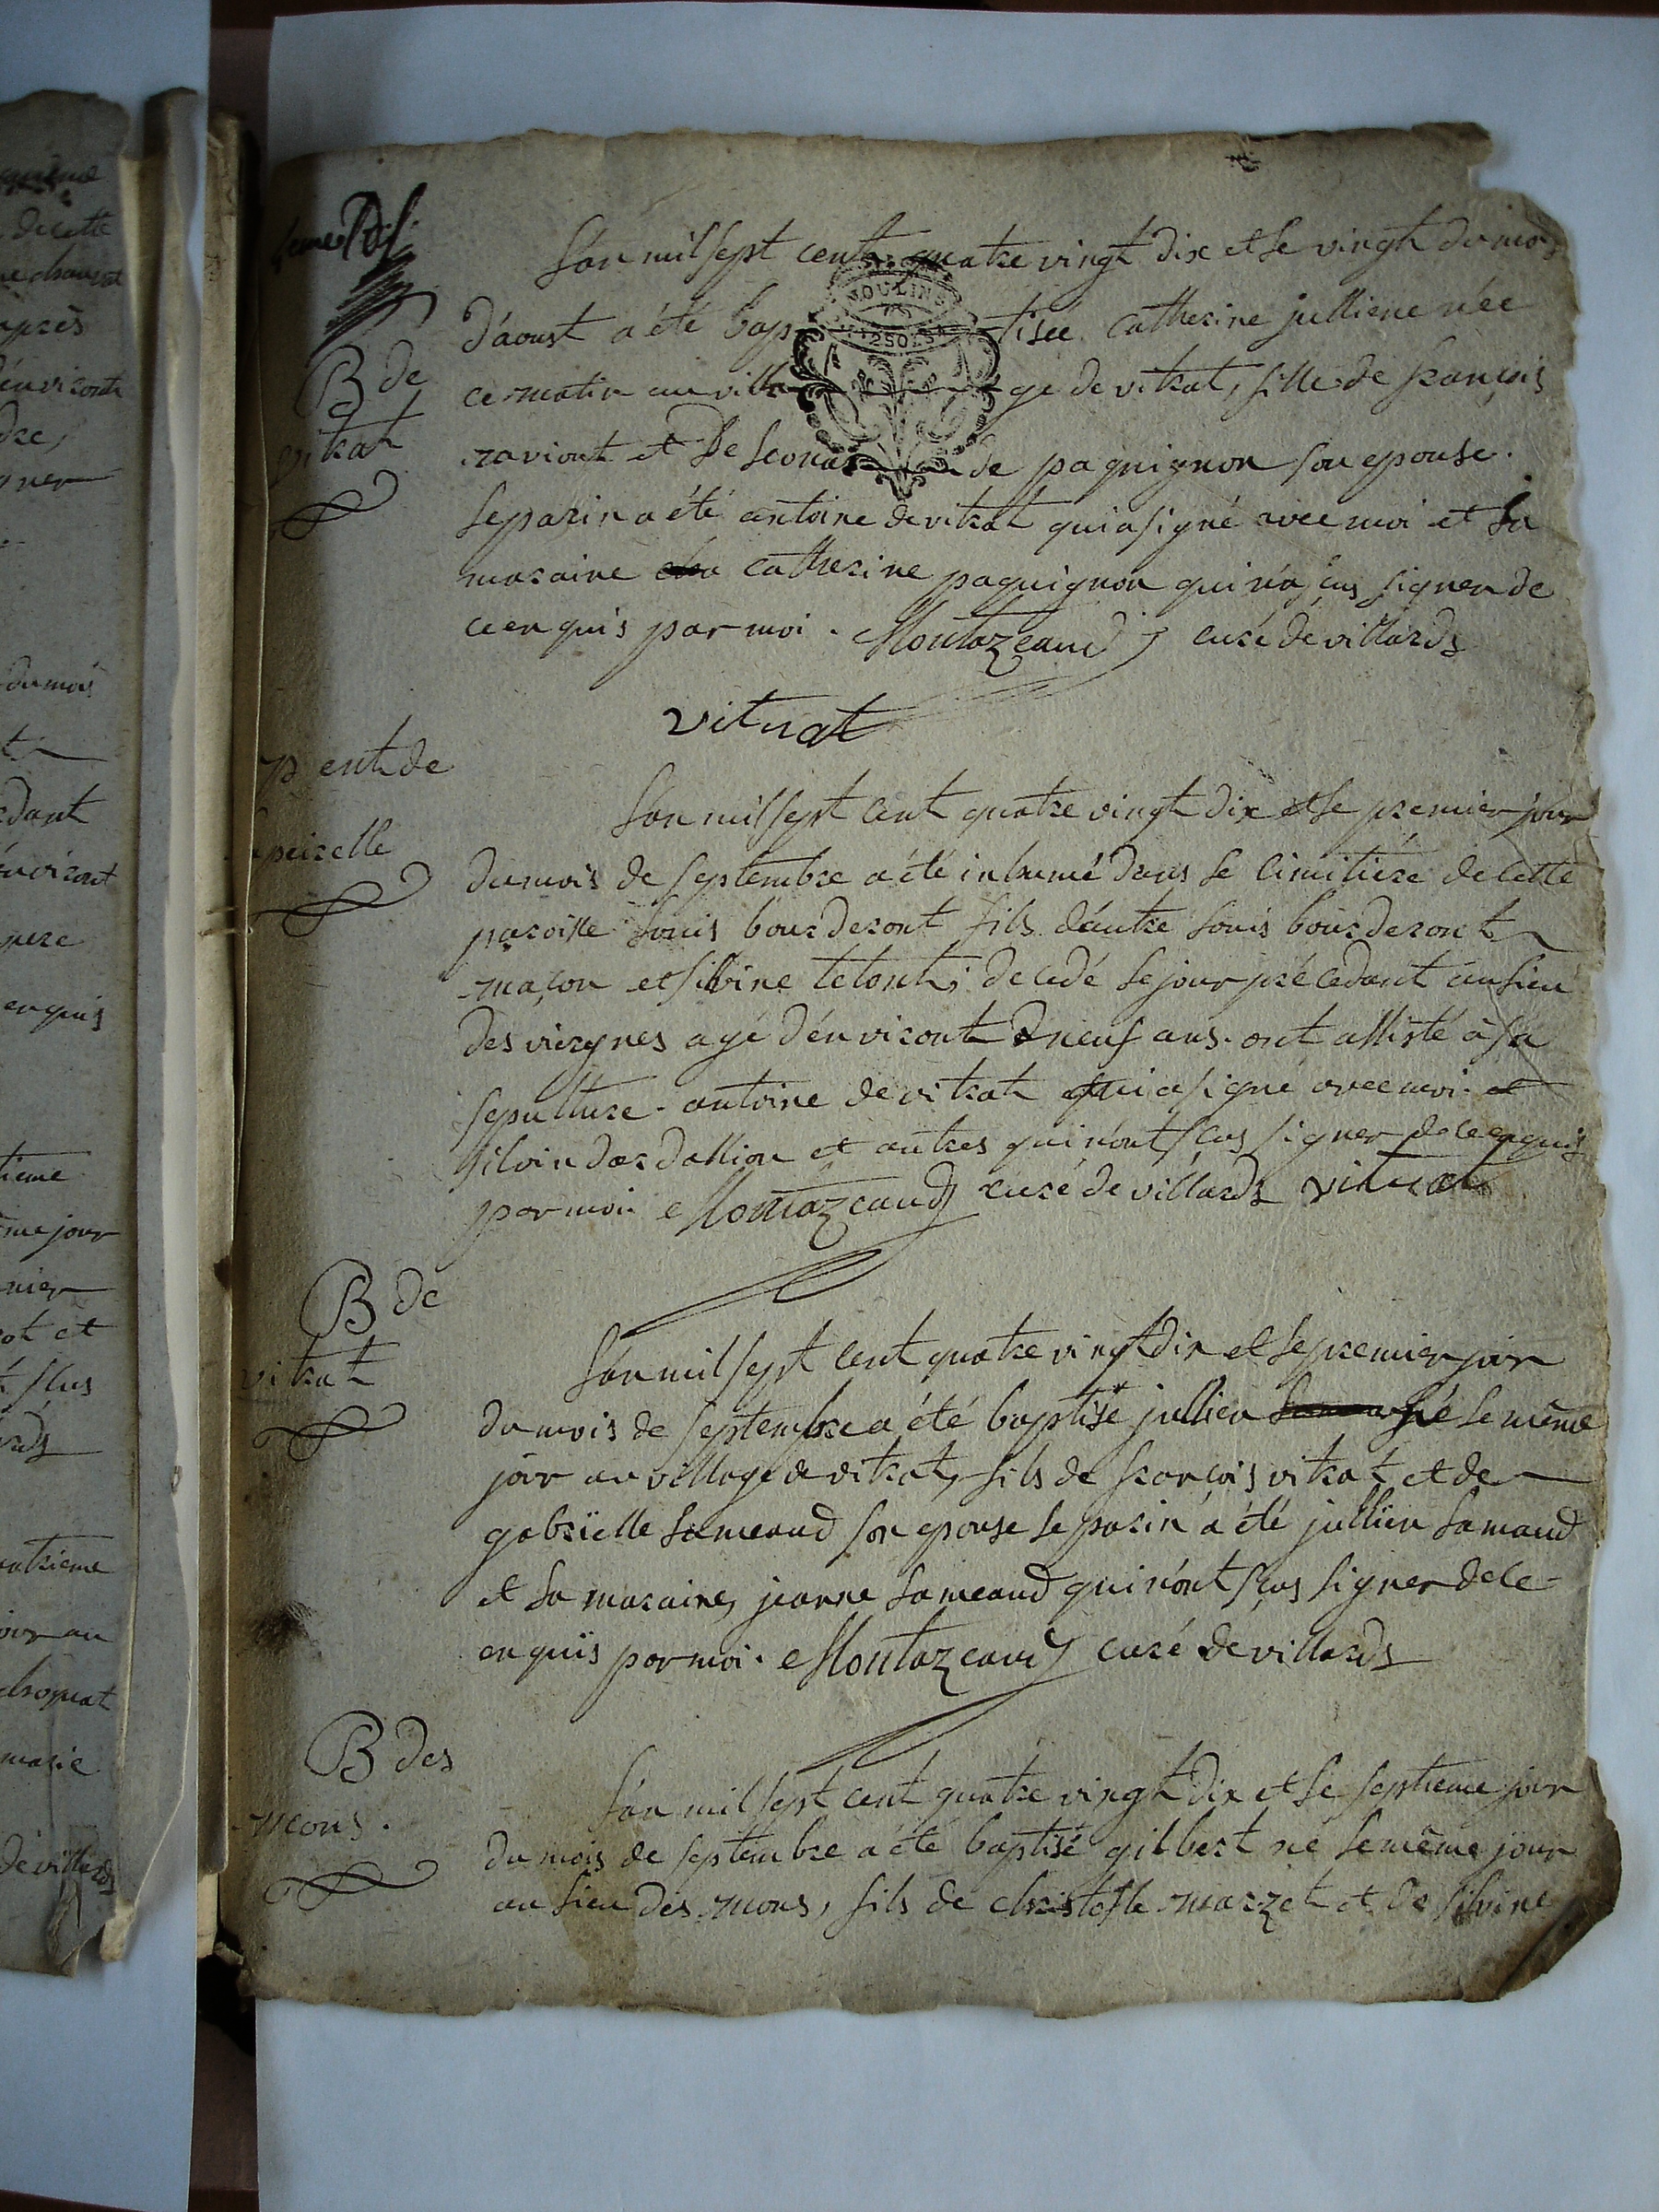 L'an mil sept cent quatre vingt dix et le vingt du mois
d'aoust a été bap tisée catherine julliene née
ce matin au villa ge de vitrat, fille de françois
raviont et de leonar de paquignon son epouse.
le parin a été antoine de vitrat qui a signé avec moi et la
maraine catherine paquignon qui n'a sçus signer de
ce enquis par moi. Montazeaud curé de villards
MOULINS
vitrat
B de
vitrat
ent de
L'an mil sept cent quatre vingt dix et le premier jour
du mois de septembre a été inhumé dans le cimitiére de cette
paroisse louis bourderont fils d'autre louis bourderont
maçon et silvine tetont, decedé le jour précedant au lieu
des viergnes agé d'environt neuf ans. ont assisté à sa
sepulture. antoine de vitrat qui a signé avec moi. et
silvin dardallion et autres qui n'ont sçus signer de ce enquis
par moi. Montazeaud curé de villards vitrat
B de
vitrat
L'an mil sept cent quatre vingt dix et le premier jour
du mois de septembre a été baptisé jullien né le même
jour au village de vitrat, fils de françois vitrat et de
gabriëlle lameaud son epouse le parin a été jullien lamaud
et la maraine, jeanne lameaud qui n'ont sçus signer de ce
enquis par moi. Montazeaud curé de villards
B des
mons.
L'an mil sept cent quatre vingt dix et le septieme jour
du mois de septembre a été baptisé gilbert né le même jour
au lieu des mons, fils de christofle mazzet et de silvine